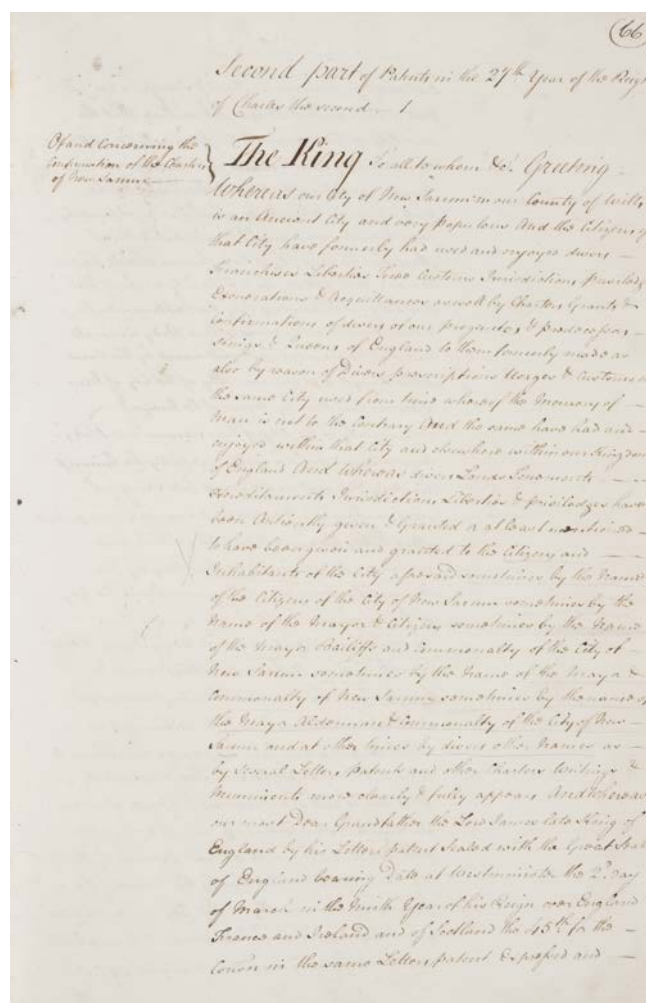 66
Second part of Patents in the 27th Year of the Reign
of Charles the second - 1
Of and Concerning the
Confirmation of the Charters
of New Sarum
The King To all to whom &c. Greeting -
Whereas our City of New Sarum in our County of Wilts
is an Ancient City and very populous And the Citizens of
that City have formerly had used and enjoyed divers -
Franchises Liberties Free Customs Jurisdictions priviledges
Exonerations & Acquittances as well by Charters Grants &
Confirmations of divers of our progenitors & predecessors
Kings & Queens of England to them formerly made as
also by reason of Divers prescriptions Usages & Customs in
the same City used from time whereof the Memory of -
Man is not to the Contrary And the same have had and -
enjoyed within that City and elsewhere within our Kingdom
of England And whereas divers Lands Tenements - - -
Hereditaments Jurisdictions Liberties & priviledges have
been Antiently given & Granted a at least mentioned -
to have been given and granted to the Citizens and -
Inhabitants of the City aforesaid sometimes by the Name
of the Citizens of the City of New Sarum sometimes by the
Name of the Mayor & Citizens sometimes by the Name
of the Mayor Bailiffs and Commonalty of the City of -
New Sarum sometimes by the Name of the Mayor &
Commonalty of New Sarum sometimes by the name of
the Mayor Aldermen & Commonalty of the City of New -
Sarum and at other times by divers other Names as -
by Several Letters patents and other Charters Writings &
Muniments more clearly & fully appears And whereas
our most Dear Grandfather the Lord James late King of
England by his Letters patent Sealed with the Great Seal
of England bearing Date at Westminster the 2d. day
of March in the Ninth Year of his Reign over England
France and Ireland and of Scotland the 45th. for the -
Con'on in the same Letters patent Expressed and -